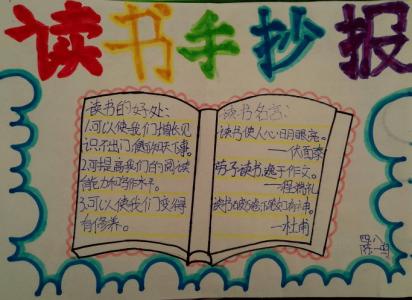 读书手抄报
读书的好处:
1.可以使我们增长见
识,不出门,便知天下事。
2.可提高我们的阅读
能力和写作水平。
3.可以使我们变得
有修养。
读书名言:
读书使人心明眼亮。
——伏尔泰
劳于读书,逸于作文。
——程端礼
读书破万卷,下笔如有神。
——杜甫
四八